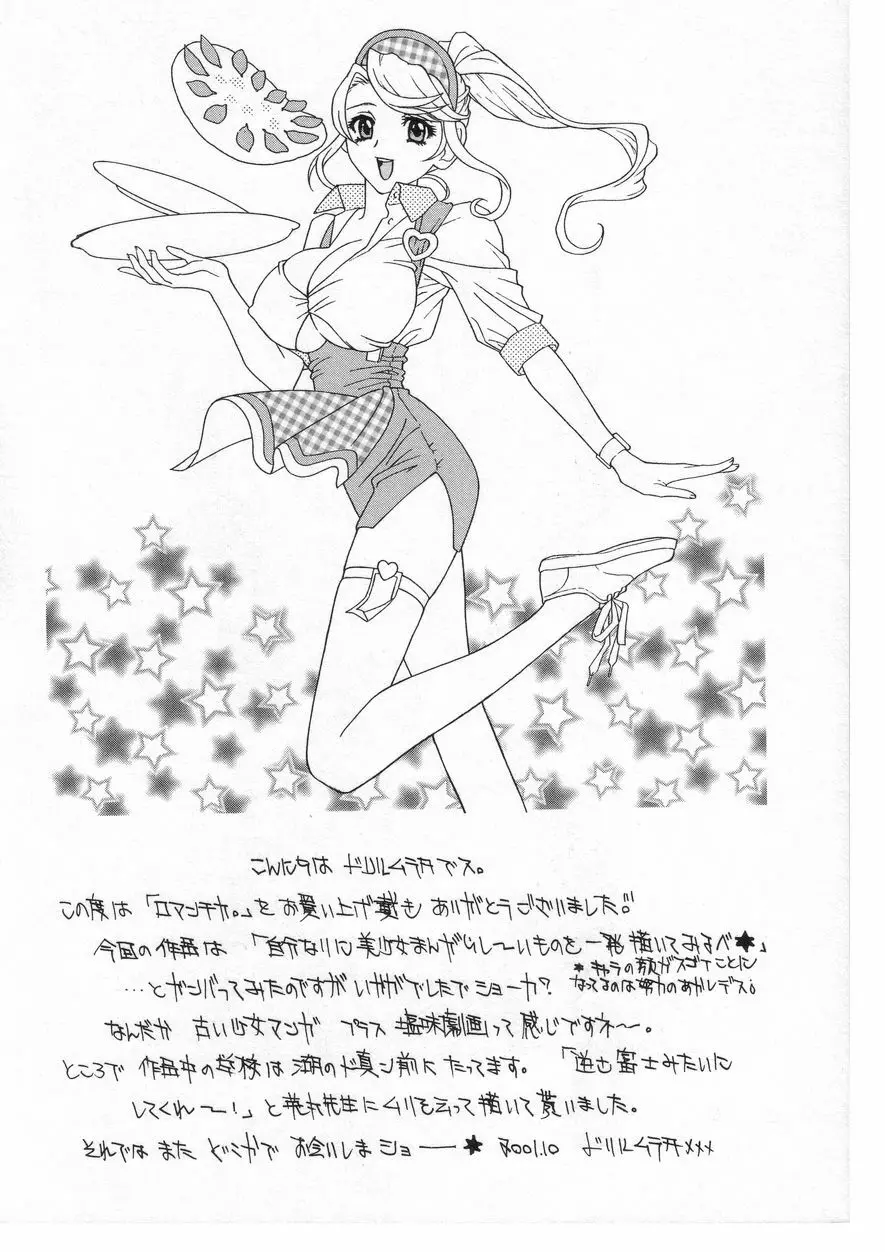 こんにちは ドリルムラタでス。
この度は「ロマンチカ。」をお買い上げ戴き ありがとうございました!!
今回の作品は 「自分なりに美少女まんがらし〜いものを一発描いてみるべ★」
*キャラの顔がスゴイことに
なってるのは努力のあかしデス。
…とガンバってみたのですが いかがでしたでショーか?
なんだか 古い少女マンガ プラス 塩味劇画って感じですネ〜。
ところで 作品中の学校は 湖のド真ン前に たってます。「逆さ富士みたいに
してくれ〜!」と荒木先生にムリを云って描いて貰いました。
それではまた どこかで お会いしまショー──★ 2001.10 ドリルムラタxxx